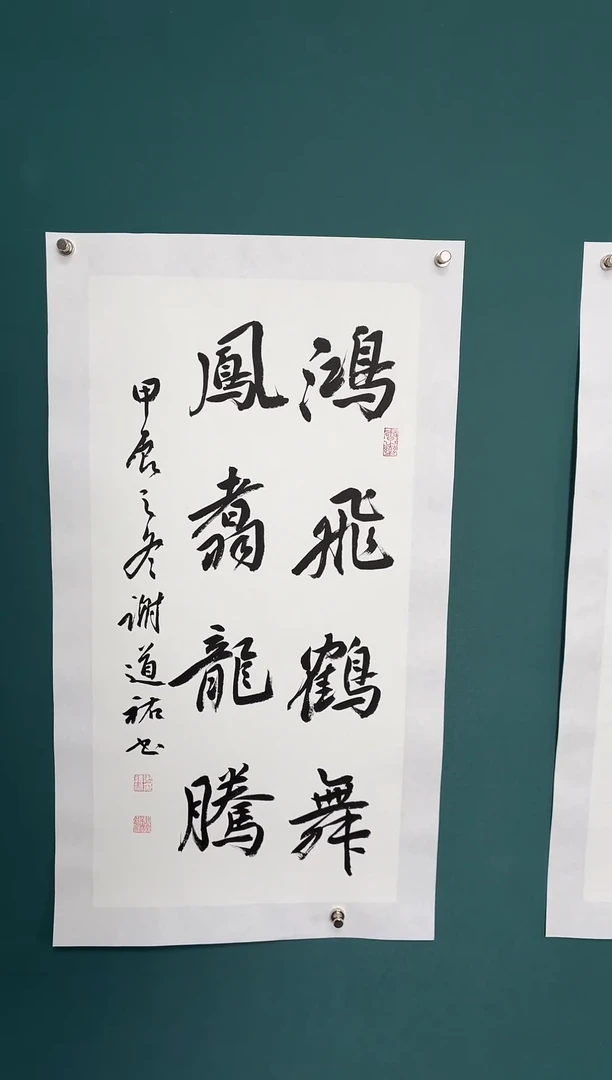 鴻飛鶴舞
鳳翥龍騰
甲辰之冬謝道祐书